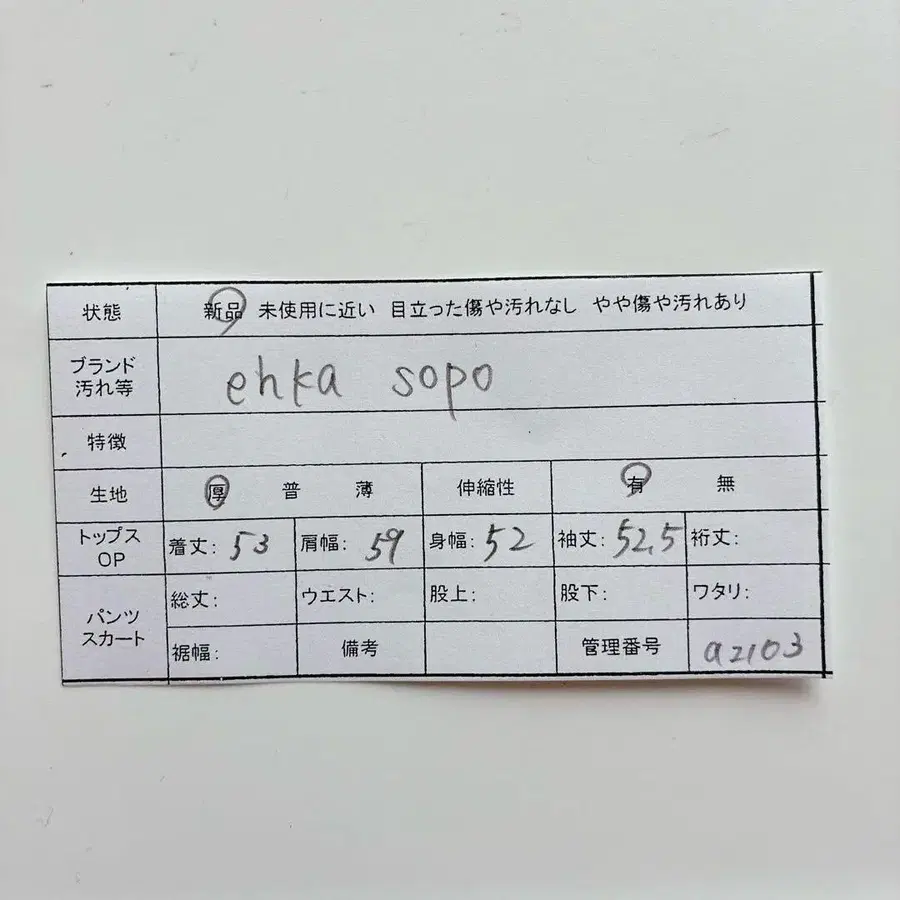 状態 新品 未使用に近い 目立った傷や汚れなし やや傷や汚れあり
ブランド
汚れ等 ehka sopo
特徴
生地 厚 普 薄 伸縮性 有 無
トップス
OP 着丈: 53 肩幅: 59 身幅: 52 袖丈: 52.5 裄丈:
パンツ
スカート 総丈: ウエスト: 股上: 股下: ワタリ:
裾幅: 備考 管理番号 a2103